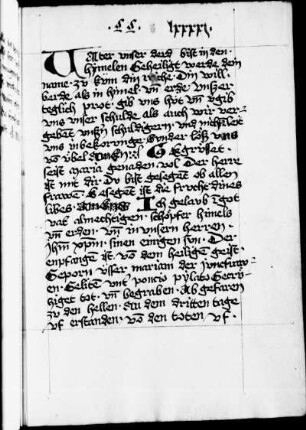 Vatter vnser der du bist in den
hymelen Geheiliget werde dein
name · zů kum din ryche · Din will
werde als in himel vn̄ erde · vnser
teglich prot · gib vns hüt vn̄ vgib
vns vnser schulde als auch wir ver
geben vnsern schuldigern · vnd nicht leit
vns in bekorunge sunder lösz vns
vō übel · Amen · Gegrüsset
seist maria genaden vol Der herre
ist mit dir Du bist gesegent ob allen
frawē · Gesegent ist die frucht dines
libes · Amen · Ich gelaub i got
vat almechtigen · schöpfer himels
vn̄ erden · vn̄ in vnsern herren ·
ihm xpm · sinen einigen sun · Der
enpfangē ist · vō dem heiligē geist ·
Geporn vsser mariam der junckfrōw
en · Gelitē vnt poncio pylato Gecrü
tziget tot · vn̄ begraben · Ab gefaren
zů den hellen · An dem dritten tage
vf erstanden · vō den toten vf ·